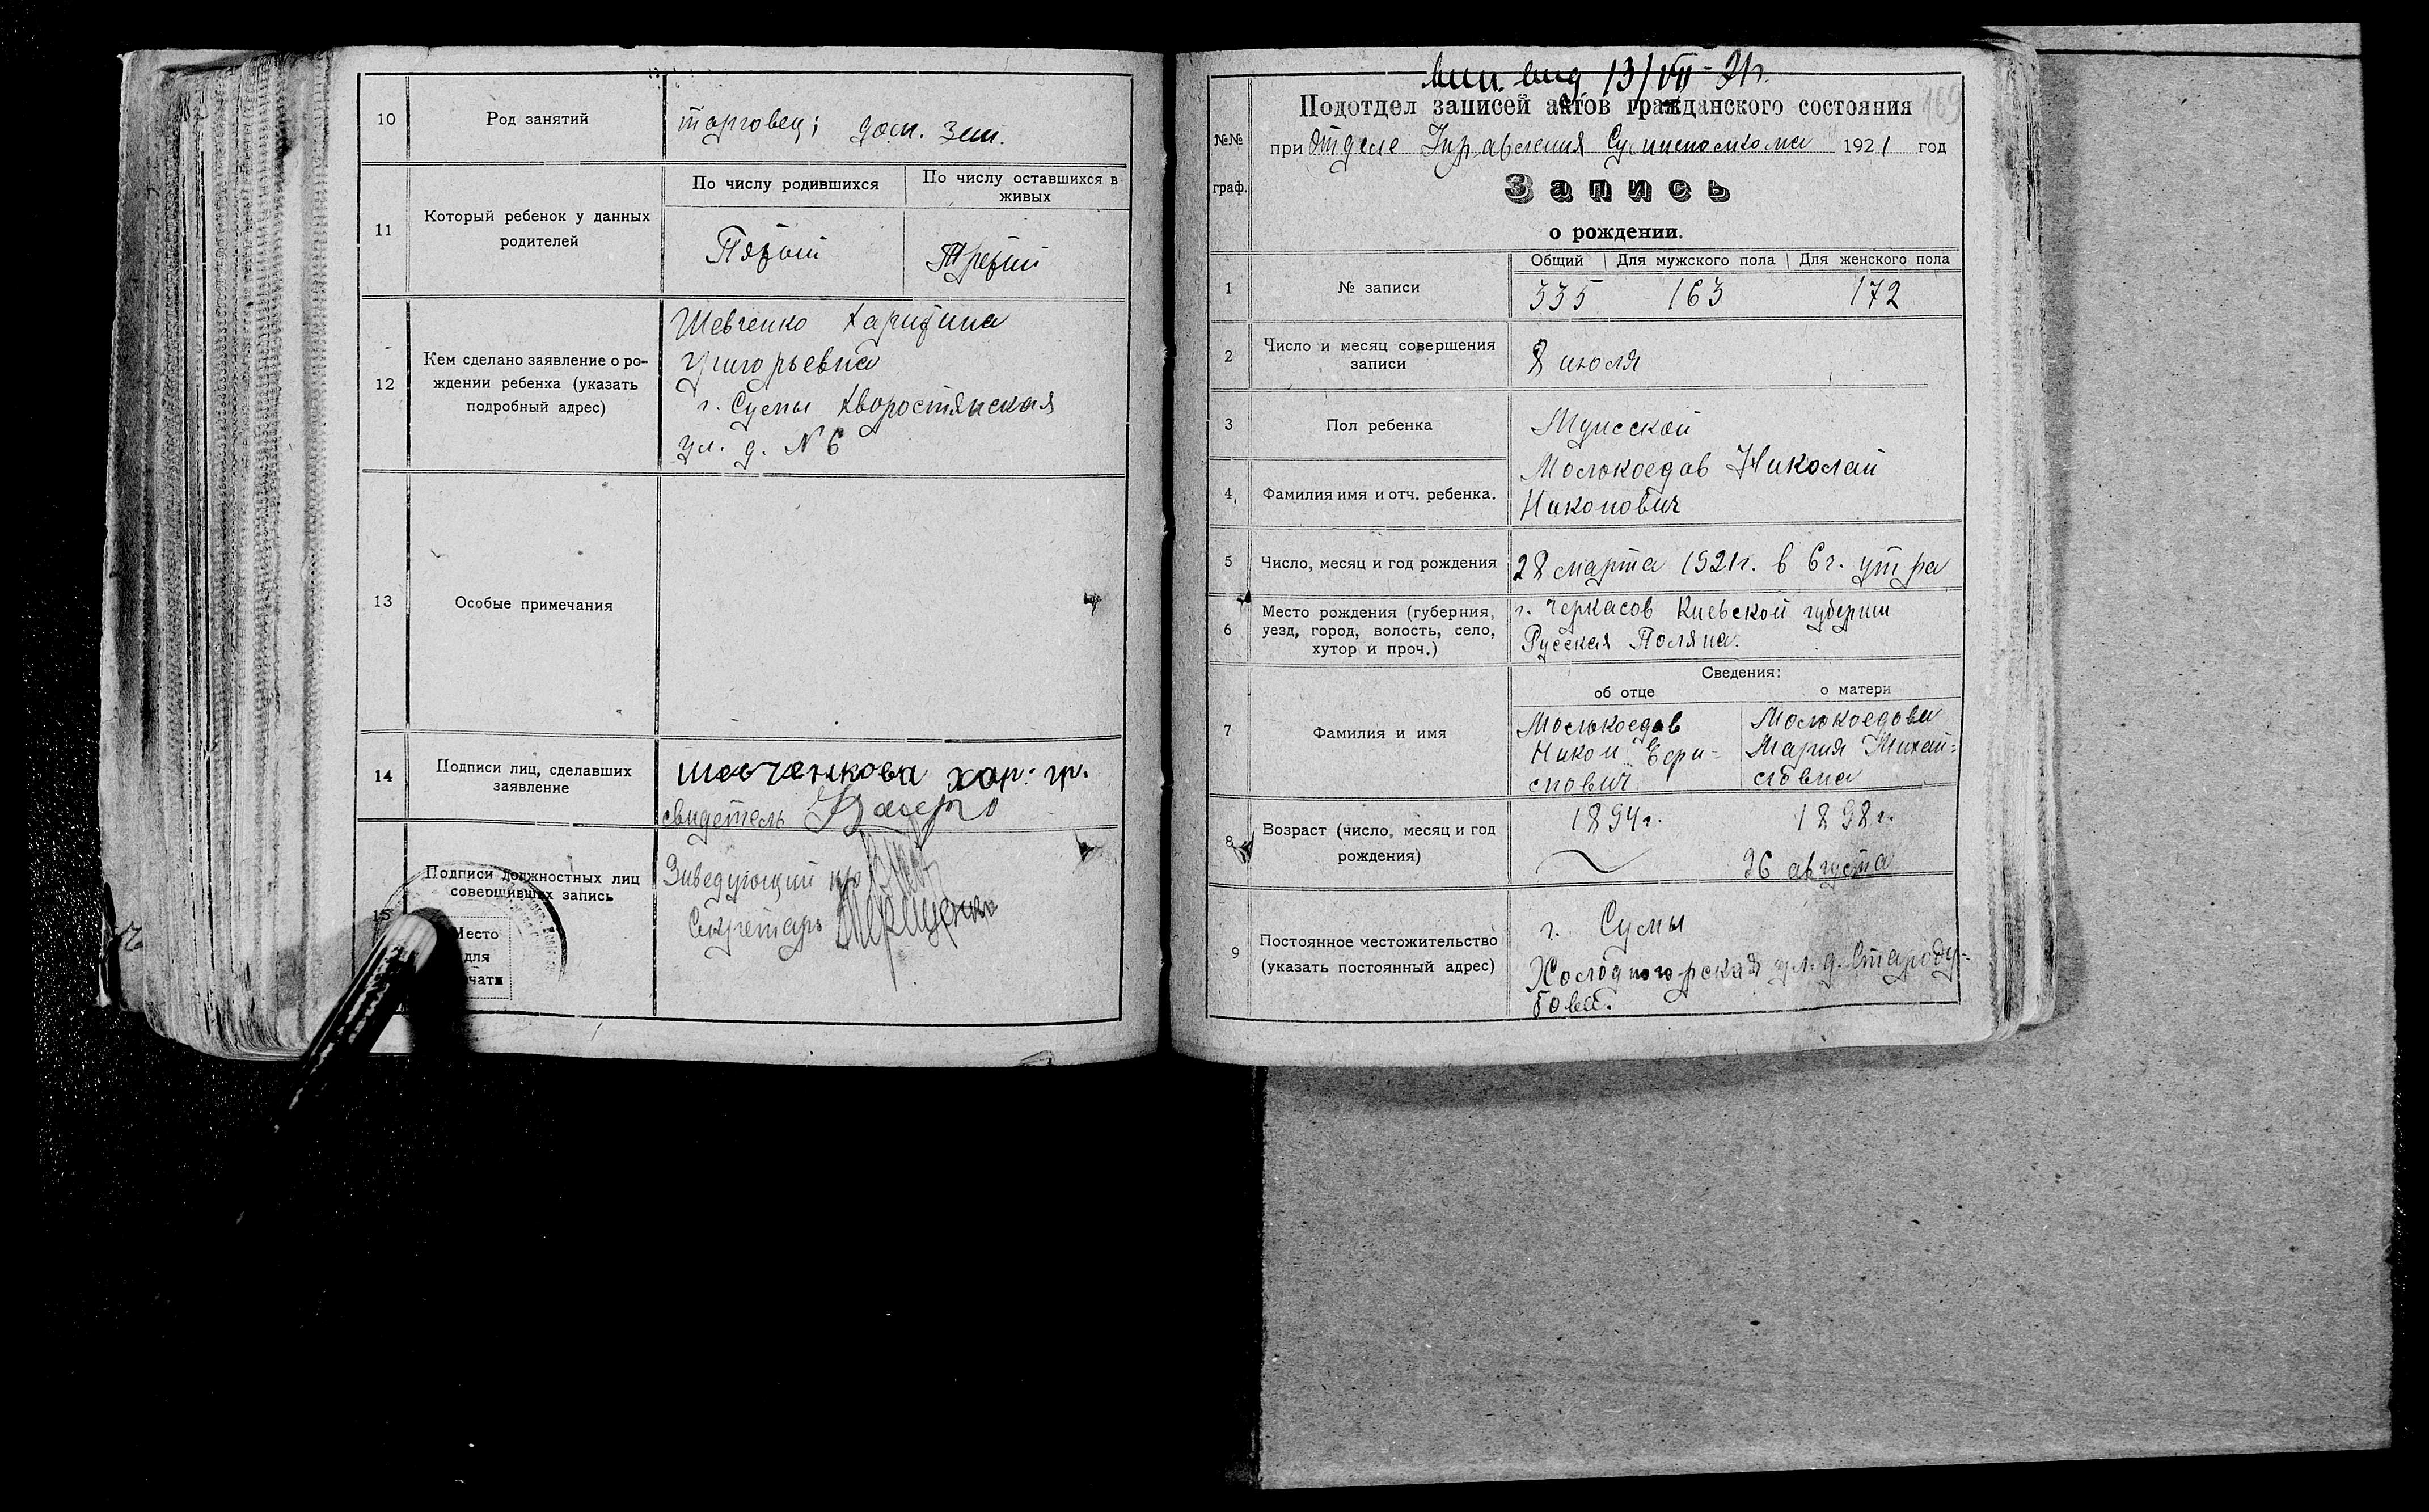 10 Род занятий торговец; дом. зан.
11 Который ребенок у данных
родителей
По числу родившихся По числу оставшихся в
живых
Пятый Третий
12 Кем сделано заявление о ро-
ждении ребенка (указать
подробный адрес)
Шевченко Харитина
Григорьевна
г. Сумы Хворостянская
ул. д. N 6
13 Особые примечания
14 Подписи лиц, сделавших
заявление
Шевченкова хар. гр.
свидетель
15 Подписи должностных лиц
совершивших запись
Место
для
чати
Заведующий
Секретарь
13/VII-21г.
169
Подотдел записей актов гражданского состояния
при Отделе Управления 1921 год
№№
граф.
Запись
о рождении.
1 № записи
Общий Для мужского пола Для женского пола
335 163 172
2 Число и месяц совершения
записи
8 июля
3 Пол ребенка Мужской
4 Фамилия имя и отч. ребенка.
Молокоедов Николай
Никонович
5 Число, месяц и год рождения 28 марта 1921г. в 6ч. утра
6 Место рождения (губерния,
уезд, город, волость, село,
хутор и проч.)
г. Черкасов Киевской губернии
Русская Поляна.
Сведения:
об отце о матери
7 Фамилия и имя
Молокоедов
Никон
Молокоедова
Мария Михай-
ловна
8 Возраст (число, месяц и год
рождения)
1894г. 1898г.
26 августа
9 Постоянное местожительство
(указать постоянный адрес)
г. Сумы
Холодногорская ул. д. Староду-
бова.